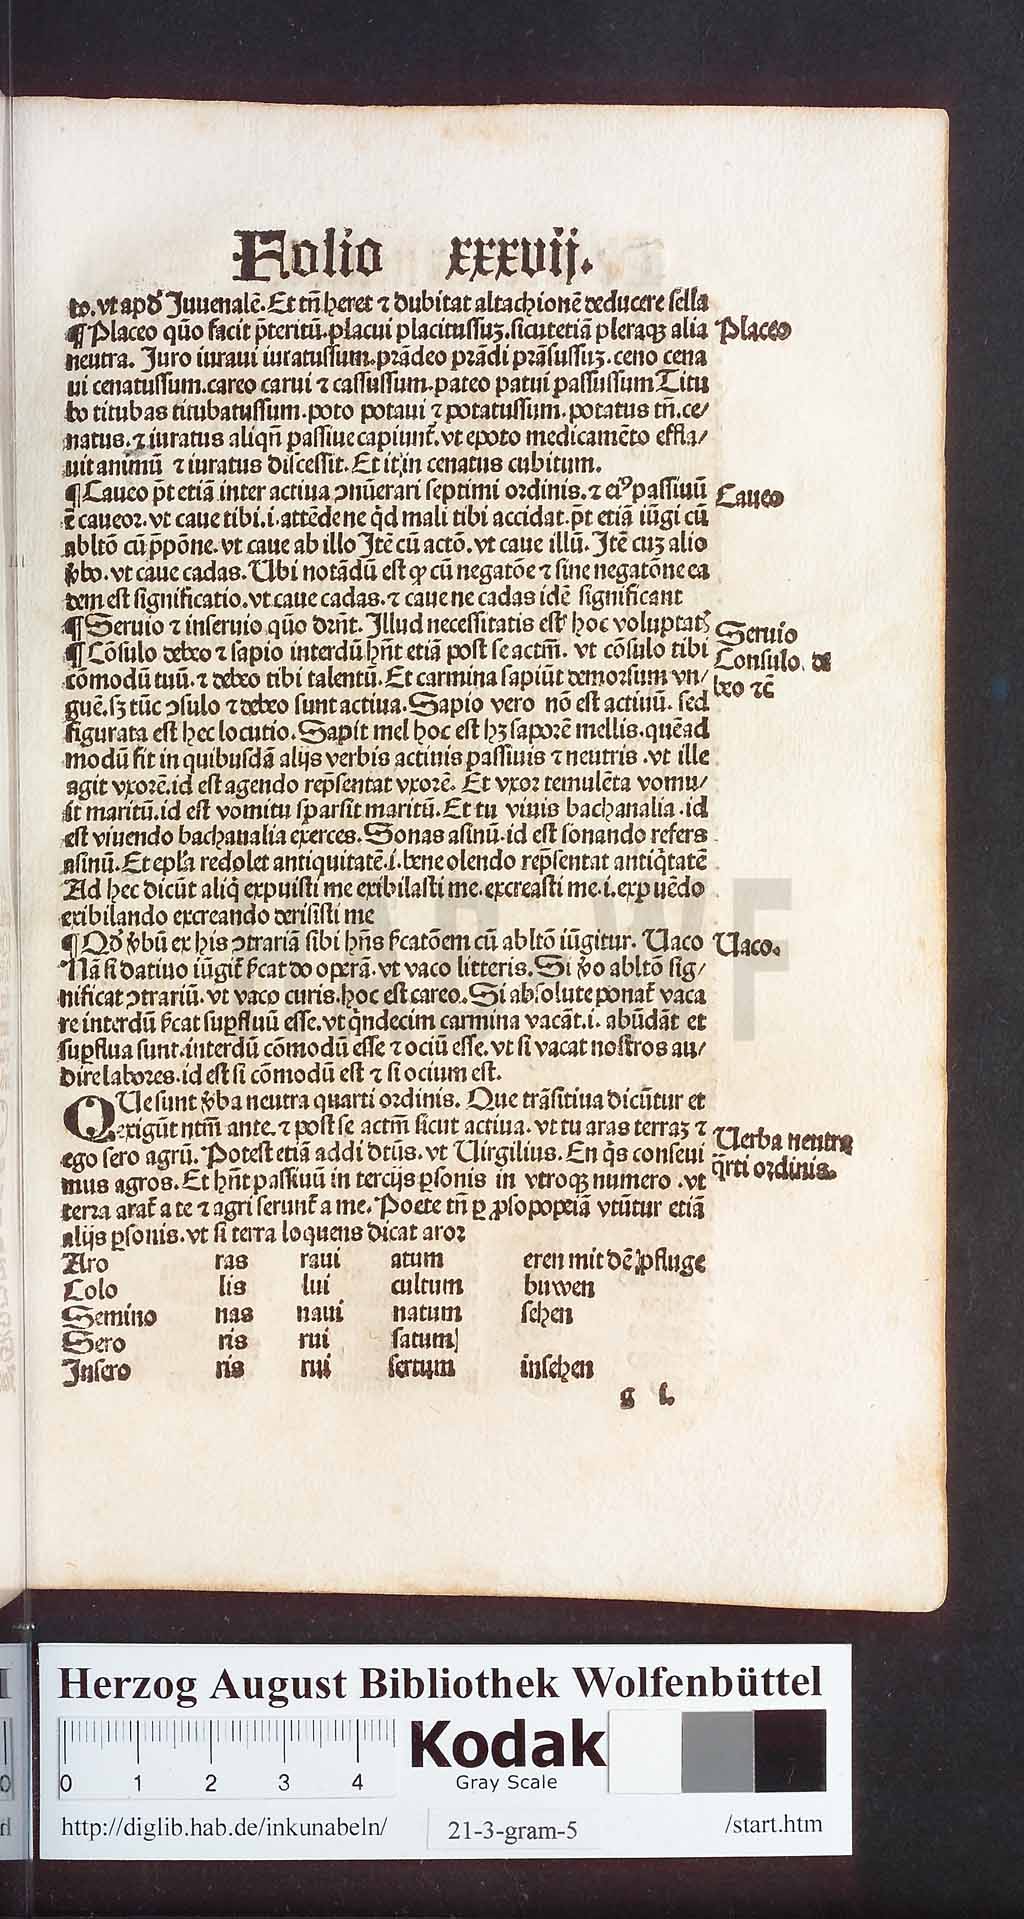 Folio xxxvij.
to. vt apḋ Juuenalē. Et tñ heret ⁊ dubitat altachionē deducere sella
¶ Placeo qūo facit p̄teritū. placui placitussuꝫ. sicut etiā pleraqꝫ alia
Placeo
neutra. Juro iuraui iuratussum. prādeo prādi prāsussuꝫ. ceno cena
ui cenatussum. careo carui ⁊ cassussum. pateo patui passussum Titu
bo titubas titubatussum. poto potaui ⁊ potatussum. potatus tñ. ce/
natus. ⁊ iuratus aliqñ passiue capiunt᷑. vt epoto medicamēto effla/
uit animū ⁊ iuratus discessit. Et itꝭ in cenatus cubitum.
¶ Caueo p̄t etiā inter actiua ↄnūerari septimi ordinis. ⁊ eiꝰ passiuū
Caueo
ē caueor. vt caue tibi. i. attēde ne q̇d mali tibi accidat. p̄t etiā iūgi cū
abltō cū p̄pōne. vt caue ab illo Itē cū actō. vt caue illū. Itē cuꝫ alio
v̄bo. vt caue cadas. Ubi notādū est ꝙ cū negatōe ⁊ sine negatōne ea
dem est significatio. vt caue cadas. ⁊ caue ne cadas idē significant
¶ Seruio ⁊ inseruio qūo dr̄nt. Illud necessitatis est hoc voluptatꝭ
Seruio
¶ Cōsulo debeo ⁊ sapio interdū hñt etiā post se actm̄. vt cōsulo tibi
Consulo. de
cōmodū tuū. ⁊ debeo tibi talentū. Et carmina sapiūt demorsum vn/
beo ⁊c̄
guē. sꝫ tūc ↄsulo ⁊ debeo sunt actiua. Sapio vero nō est actiuū. sed
figurata est hec locutio. Sapit mel hoc est hꝫ saporē mellis. quēad
modū fit in quibusdā alijs verbis actiuis passiuis ⁊ neutris. vt ille
agit vxorē. id est agendo rep̄sentat vxorē. Et vxor temulēta vomu/
it maritū. id est vomitu sparsit maritū. Et tu viuis bachanalia. id
est viuendo bachaualia exerces. Sonas asinū. id est sonando refers
asinū. Et epl̄a redolet antiquitatē. i. bene olendo rep̄sentat antiq̇tatē
Ad hec dicūt aliq̇ expuisti me exibilasti me. excreasti me. i. expuēdo
exibilando excreando derisisti me
¶ Qḋ v̄bū ex his ↄtrariā sibi hñs s̄catōem cū abltō iūgitur. Uaco
Uaco.
Nā si datiuo iūgit᷑ s̄cat do operā. vt vaco litteris. Si v̄o abltō sig/
nificat ↄtrariū. vt vaco curis. hoc est careo. Si absolute ponat᷑ vaca
re interdū s̄cat suꝑfluū esse. vt q̇ndecim carmina vacāt. i. abūdāt et
suꝑflua sunt. interdū cōmodū esse ⁊ ociū esse. vt si vacat nostros au/
dire labores. id est si cōmodū est ⁊ si ocium est.
QUe sunt v̄ba neutra quarti ordinis. Que trāsitiua dicūtur et
exigūt ntm̄ ante. ⁊ post se actm̄ sicut actiua. vt tu aras terraꝫ ⁊
Uerba neutra
ego sero agrū. Potest etiā addi dtūs. vt Uirgilius. En q̇s conseui
q̄rti ordinis.
mus agros. Et hñt passiuū in tercijs ꝑsonis in vtroqꝫ numero. vt
terra arat᷑ a te ⁊ agri serunt᷑ a me. Poete tñ ꝑ ꝓsopopeiā vtūtur etiā
alijs ꝑsonis. vt si terra loquens dicat aror
Aro ras raui atum eren mit dē pfluge
Colo lis lui cultum buwen
Semino nas naui natum sehen
Sero ris rui satum
Insero ris rui sertum insehen
g
Herzog August Bibliothek Wolfenbüttel
Kodak
Gray Scale
0 1 2 3 4
http://diglib.hab.de/inkunabeln/ 21-3-gram-5 /start.htm